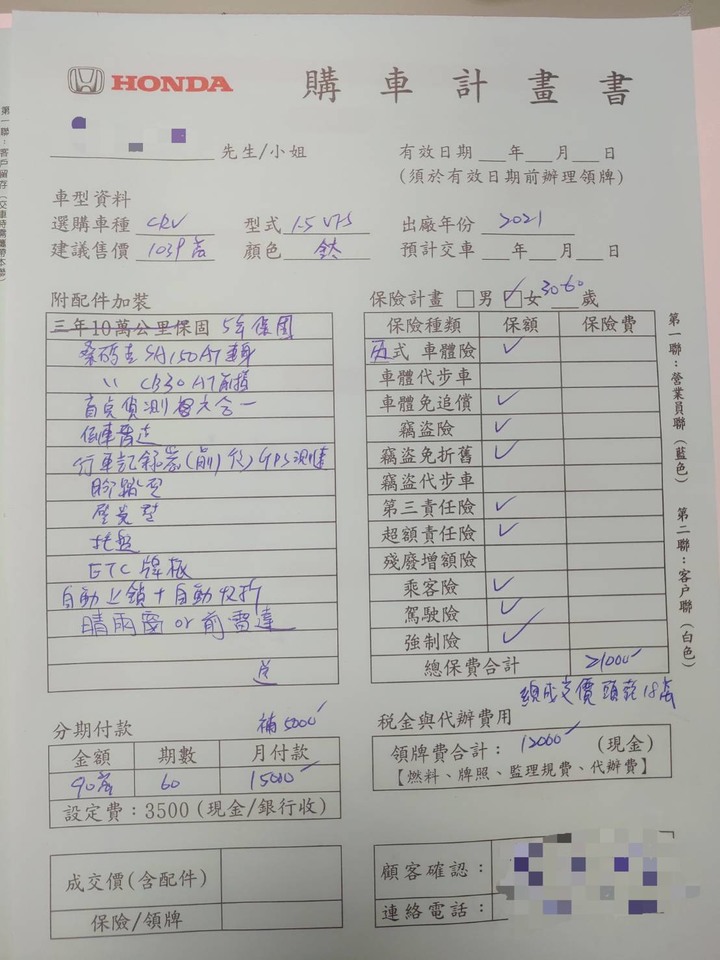 HONDA 購車計畫書
先生/小姐
有效日期 年 月 日
(須於有效日期前辦理領牌)
車型資料
選購車種 CRV 型式 1.5 VTi-S 出廠年份 2021
建議售價 103.9萬 顏色 鈦 預計交車 年 月 日
附配件加裝
三年10萬公里保固 5年保固
桑瑪克 SA150 AT 車身
〃 CB30 AT 前擋
盲點偵測 六合一
倒車雷達
行車記錄器(前)後 GPS測速
腳踏墊
托盤
ETC 牌板
自動上鎖+自動收折
晴雨窗 or 前雷達
送
保險計畫 男 女 30-60 歲
保險種類 保額 保險費
式 車體險
車體代步車
車體免追償
竊盜險
竊盜免折舊
竊盜代步車
第三責任險
超額責任險
殘廢增額險
乘客險
駕駛險
強制險
總保費合計 21000
總成交價 頭款 18萬
分期付款 補5000
金額 期數 月付款
90萬 60 15000
設定費：3500(現金/銀行收)
稅金與代辦費用
領牌費合計：12000 (現金)
【燃料、牌照、監理規費、代辦費】
成交價(含配件)
保險/領牌
顧客確認：
連絡電話：
第一聯：營業員聯(藍色) 第二聯：客户聯(白色)
第一聯：客戶留存(交車時需攜帶本聯)